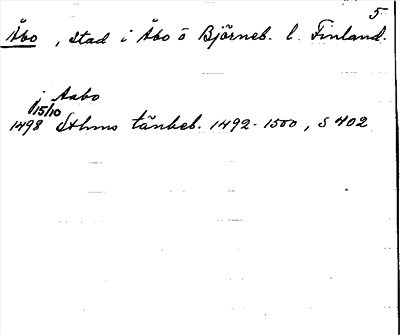 5
Åbo, stad i Åbo o Björneb. l. Finland.
i Aabo
15/10
1498 Sthms tänkeb. 1492-1500, S 402